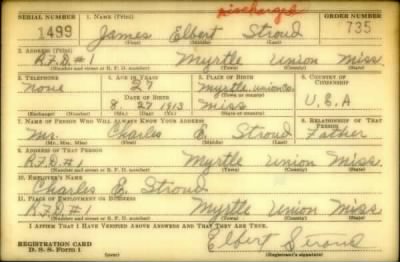 Discharged
SERIAL NUMBER 1. NAME (Print) ORDER NUMBER
1499 James Elbert Stroud 735
(First) (Middle) (Last)
2. ADDRESS (Print)
R.F.D #1 Myrtle Union Miss.
(Number and street or R. F. D. number) (Town) (County) (State)
3. TELEPHONE 4. AGE IN YEARS 5. PLACE OF BIRTH 6. COUNTRY OF CITIZENSHIP
None 27 Myrtle, Union Co. U.S.A
DATE OF BIRTH (Town or county)
8. 27 1913 Miss
(Exchange) (Number) (Mo.) (Day) (Yr.) (State or country)
7. NAME OF PERSON WHO WILL ALWAYS KNOW YOUR ADDRESS 8. RELATIONSHIP OF THAT PERSON
Mr. Charles E. Stroud Father
(Mr., Mrs., Miss) (First) (Middle) (Last)
9. ADDRESS OF THAT PERSON
R.F.D. #1 Myrtle Union Miss.
(Number and street or R. F. D. number) (Town) (County) (State)
10. EMPLOYER'S NAME
Charles E. Stroud
11. PLACE OF EMPLOYMENT OR BUSINESS
R.F.D #1 Myrtle Union Miss
(Number and street or R. F. D. number) (Town) (County) (State)
I AFFIRM THAT I HAVE VERIFIED ABOVE ANSWERS AND THAT THEY ARE TRUE.
REGISTRATION CARD
D. S. S. Form 1 (over)
Elbert Stroud
(Registrant's signature)